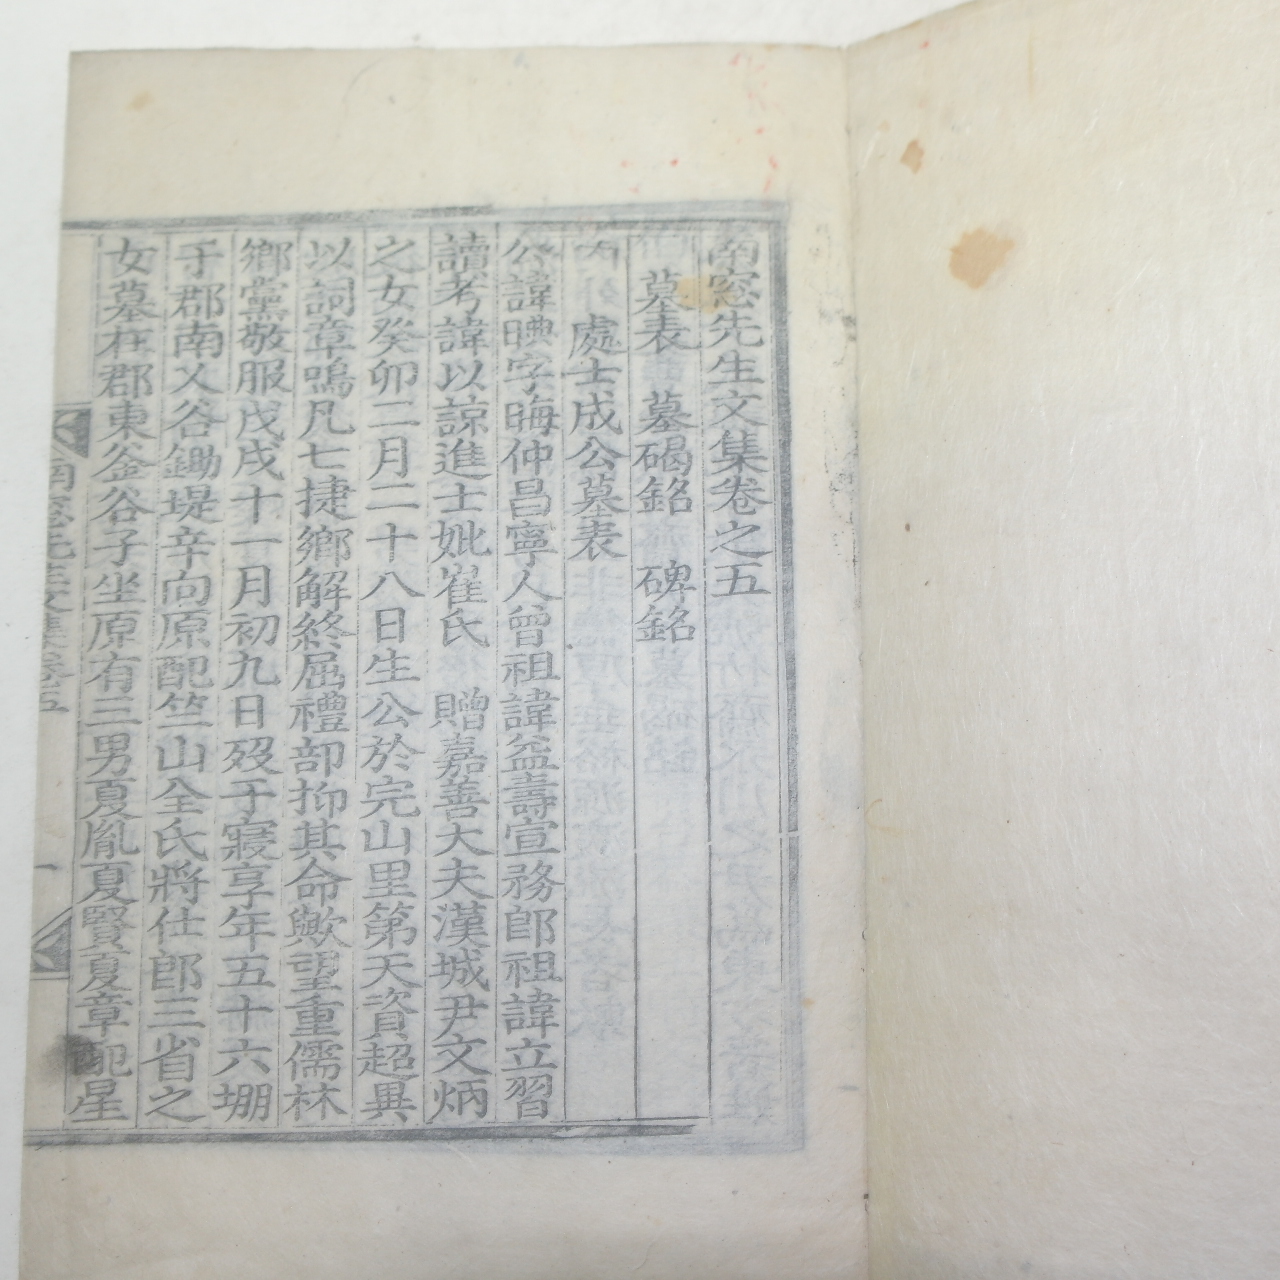 南窓先生文集卷之五
墓表 墓碣銘 碑銘
處士成公墓表
公諱㬇字晦仲昌寧人曾祖諱益壽宣務郎祖諱立習
讀考諱以諒進士妣崔氏 贈嘉善大夫漢城尹文炳
之女癸卯二月二十八日生公於完山里第天資超異
以詞章鳴凡七捷鄕解終屈禮部抑其命歟望重儒林
鄕黨敬服戊戌十一月初九日歿于寢享年五十六堋
于郡南乂谷鋤堤辛向原配竺山全氏將仕郎三省之
女墓在郡東釜谷子坐原有三男夏胤夏賢夏章配星
南窓先生文集卷五
一